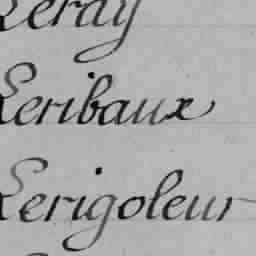 Leray
Leribaux
Lerigoleur